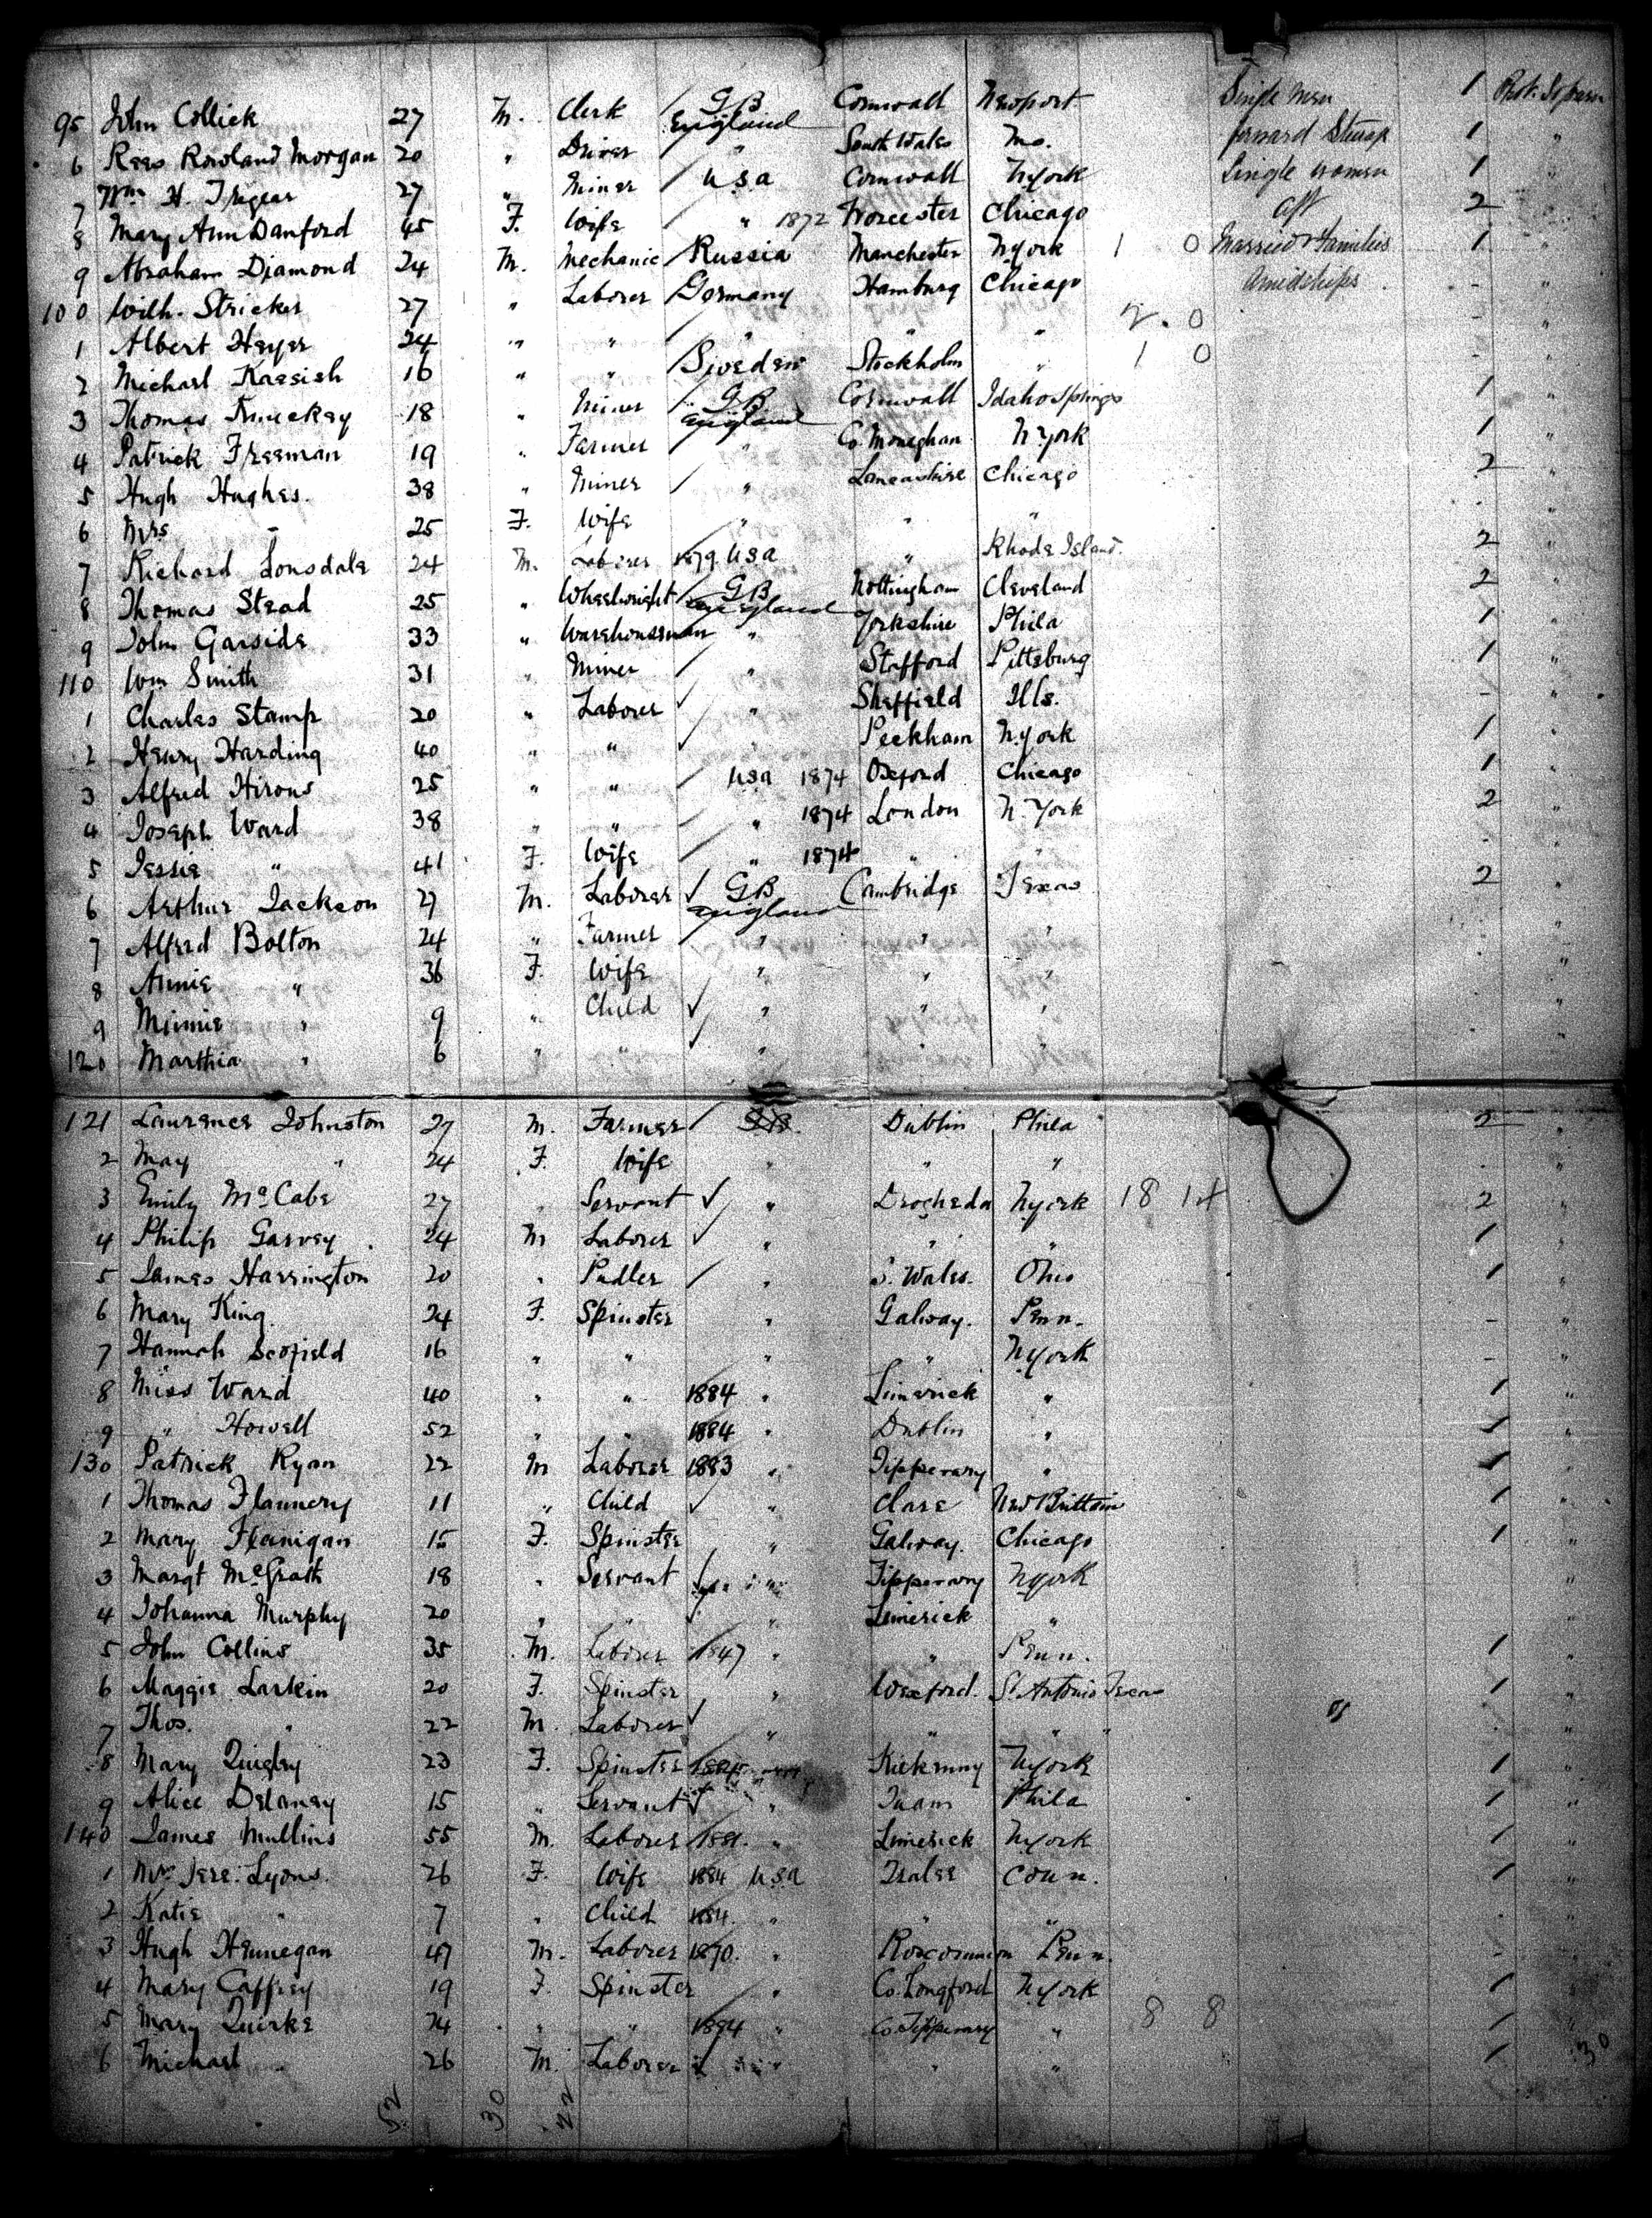 95 John Collick 27 M. Clerk GB England Cornwall Newport Single men 1
6 Rees Rowland Morgan 20 " Driver " South Wales Mo. forward Steerage 1 "
7 Wm H. Tregear 27 " Miner USA Cornwall N.York Single women 1 "
8 Mary Ann Danford 45 F. Wife " 1872 Worcester Chicago aft 2
9 Abraham Diamond 24 M. Mechanic Russia Manchester N.York 1 0 Married & Families 1 "
100 Wilh. Stricker 27 " Laborer Germany Hamburg Chicago amidships - "
1 Albert Heyer 24 " " " " " 2. 0 - "
2 Michael 16 " " Sweden Stockholm " 1 0 - "
3 Thomas 18 " Miner GB England Cornwall Idaho Springs 1 "
4 Patrick Freeman 19 " Farmer " Co. Moneghan N York 1 "
5 Hugh Hughes. 38 " Miner " Lancashire Chicago 2 "
6 Mrs - 25 F. Wife " " " "
7 Richard Lonsdale 24 M. Laborer 1879 USA " Rhode Island. 2 "
8 Thomas Stead 25 " Wheelwright GB England Nottingham Cleveland 2 "
9 John Garside 33 " Warehouseman " Yorkshire Phila 1 "
110 Wm Smith 31 " Miner " Stafford Pittsburg 1 "
1 Charles Stamp 20 " Laborer " Sheffield Ills. - "
2 Henry Harding 40 " " " Peckham N.York 1 "
3 Alfred Hirons 25 " " USA 1874 Oxford Chicago 1 "
4 Joseph Ward 38 " " " 1874 London N.York 2 "
5 Jessie " 41 F. Wife " 1874 " " "
6 Arthur Jackson 27 M. Laborer GB England Cambridge Texas 2 "
7 Alfred Bolton 24 " Farmer " " " "
8 Annie " 36 F. Wife " " " "
9 Minnie " 9 " Child " " " "
120 Marthia " 6 " " " " " "
121 Laurence Johnston 27 M. Farmer GB Dublin Phila 2 "
2 May " 24 F. Wife " " " "
3 Emily McCabe 27 " Servant " Drogheda N.York 18 14 2 "
4 Philip Garvey 24 M Laborer " " " 1 "
5 James Harrington 20 " Pudler " S. Wales. Ohio 1 "
6 Mary King. 24 F. Spinster " Galway. Penn. - "
7 Hannah Scofield 16 " " " " N.York - "
8 Miss Ward 40 " " 1884 " Limerick " 1 "
9 " Howell 52 " " 1884 " Dublin " 1 "
130 Patrick Ryan 22 M Laborer 1883 " Tipperary " 1 "
1 Thomas Flannery 11 " Child " Clare New Brittain 1 "
2 Mary Flanigan 15 F. Spinster " Galway. Chicago 1 "
3 Margt McGrath 18 " Servant " Tipperary N.York "
4 Johanna Murphy 20 " " Limerick " "
5 John Collins 35 M. Laborer 1847 " " Penn. 1 "
6 Maggie Larkin 20 F. Spinster " Wexford. St Antonio Texas 1 "
7 Thos. " 22 M. Laborer " " " "
8 Mary Quigley 23 F. Spinster Kilkenny N.York 1 "
9 Alice Delaney 15 " Servant " Tuam Phila 1 "
140 James Mullins 55 M. Laborer 1881. " Limerick N.York 1 "
1 Mrs Jere: Lyons. 26 F. Wife 1884 USA Tralee Conn. 1 "
2 Katie " 7 " Child 1884. " " " "
3 Hugh Hennegan 47 M. Laborer 1870. " Roscommon Penn. - "
4 Mary Caffrey 19 F. Spinster " Co. Longford N.York 1 "
5 Mary Quirke 24 " " " Co Tipperary " 8 8 1 "
6 Michael " 26 M. Laborer " " 1 30
52 30 22